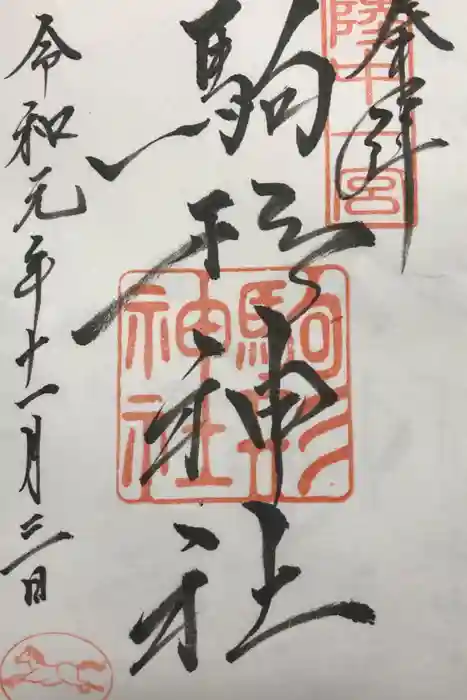 奉拝
陸中一宮
駒形神社
駒形神社
令和元年十一月三日